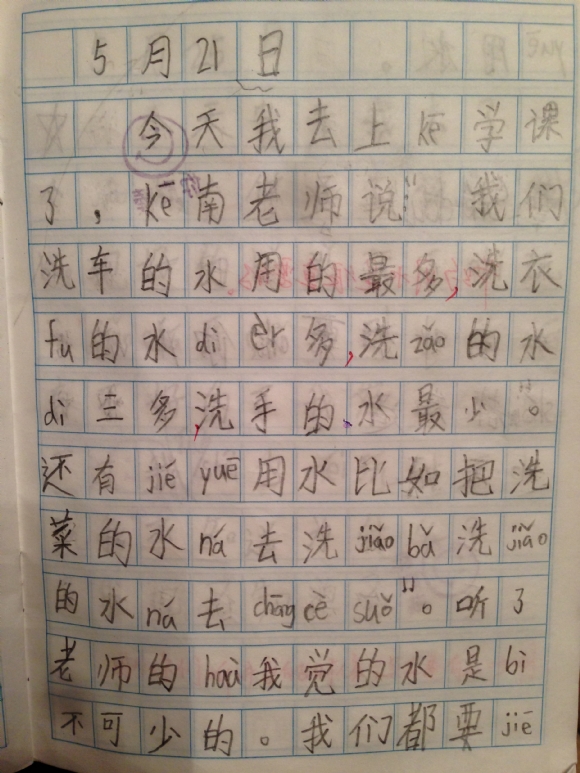 5月21日
今天我去上kē学课
了，kē南老师说：“我们
洗车的水用的最多，洗衣
fu的水di èr多，洗zǎo的水
di三多，洗手的、水最少。”
还有jié yuē用水比如把洗
菜的水ná去洗jiǎo bǎ洗jiǎo
的水ná去chōng cè suǒ”。听了
老师的huà我觉的水是bì
不可少的。我们都要jié